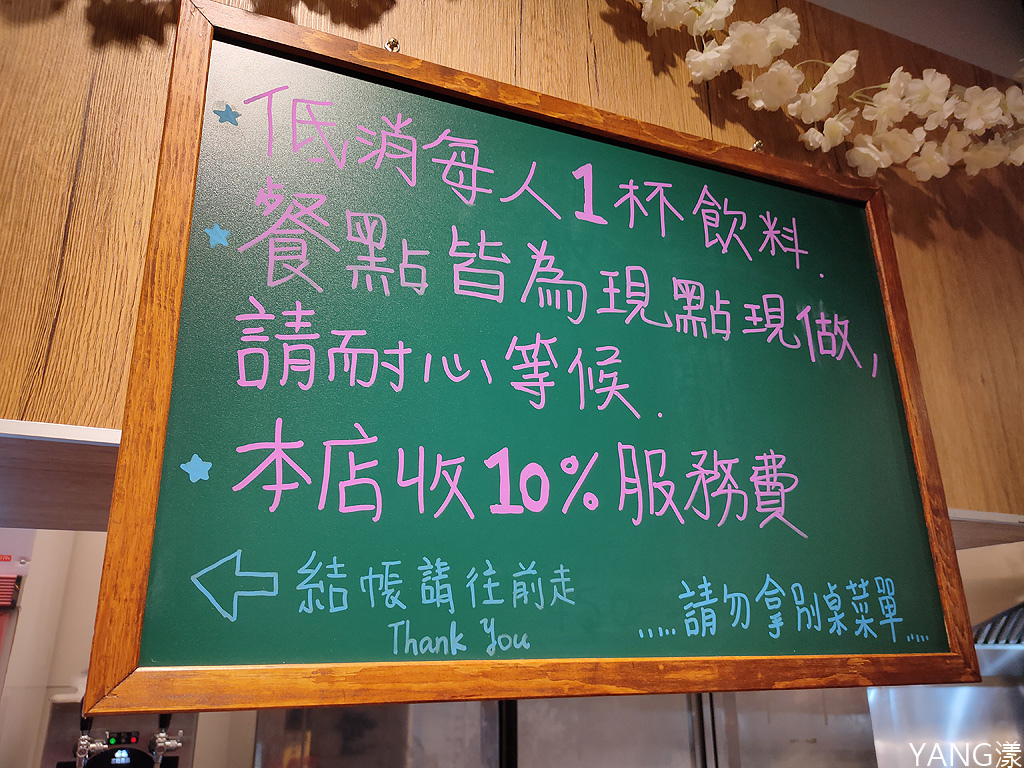 低消每人1杯飲料.
餐點皆為現點現做,
請耐心等候.
本店收10%服務費
結帳請往前走
Thank You
.....請勿拿別桌菜單.....
YANG漾